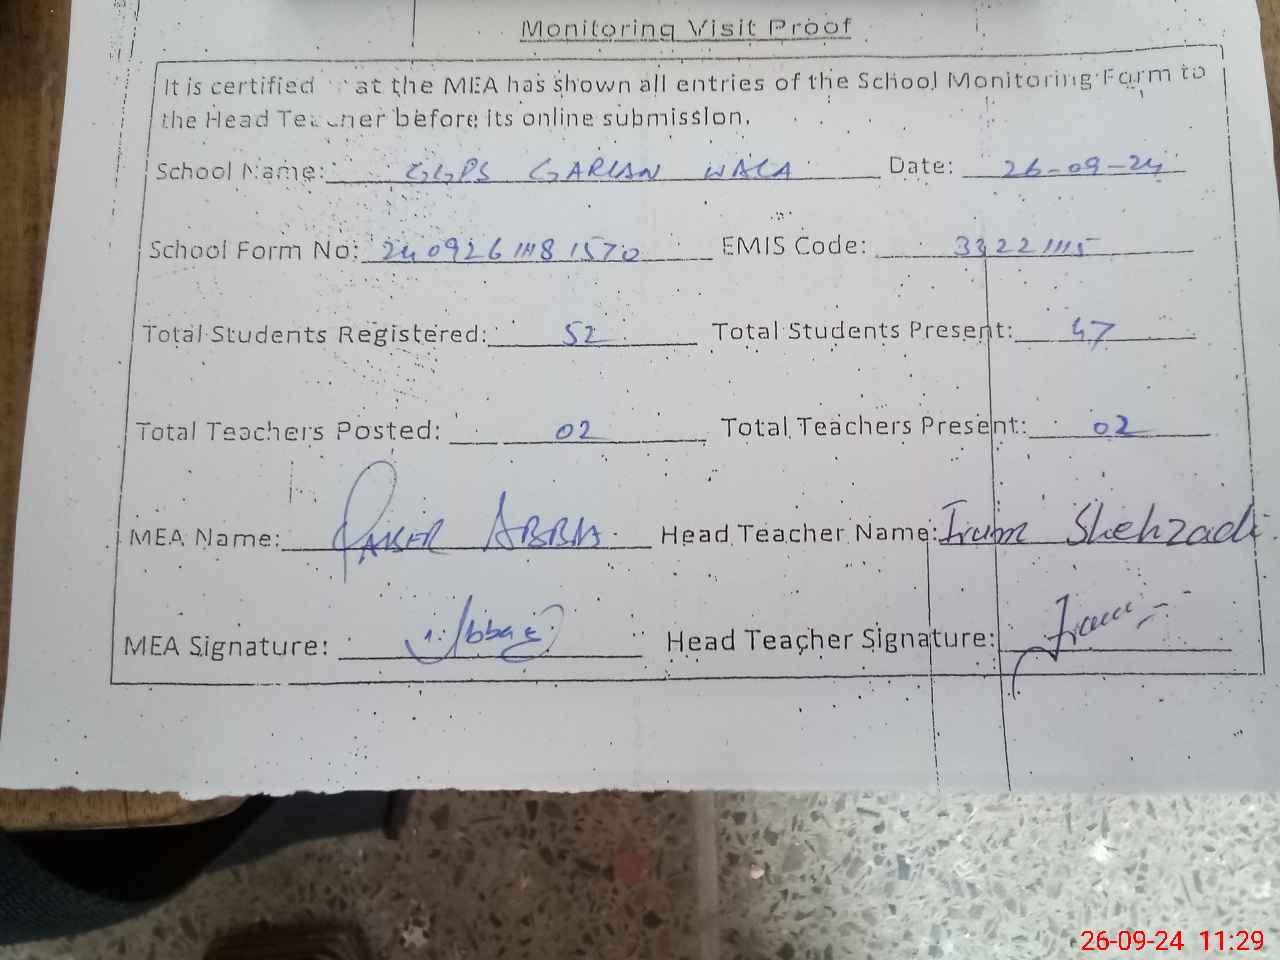 Monitoring Visit Proof
It is certified at the MEA has shown all entries of the School Monitoring Form to
the Head Teacher before its online submission.
School Name: GGPS GARLAN WALA Date: 26-09-24
School Form No: Total 240926 1118 1570 EMIS Code: 33221115
Total Students Registered: 52 Total Students Present: 47
Total Teachers Posted: 02 Total Teachers Present: 02
MEA Name: QAISER ABBAS Head Teacher Name: Irum Shehzadi.
MEA Signature: Abbas Head Teacher Signature: Irum
26-09-24 11:29